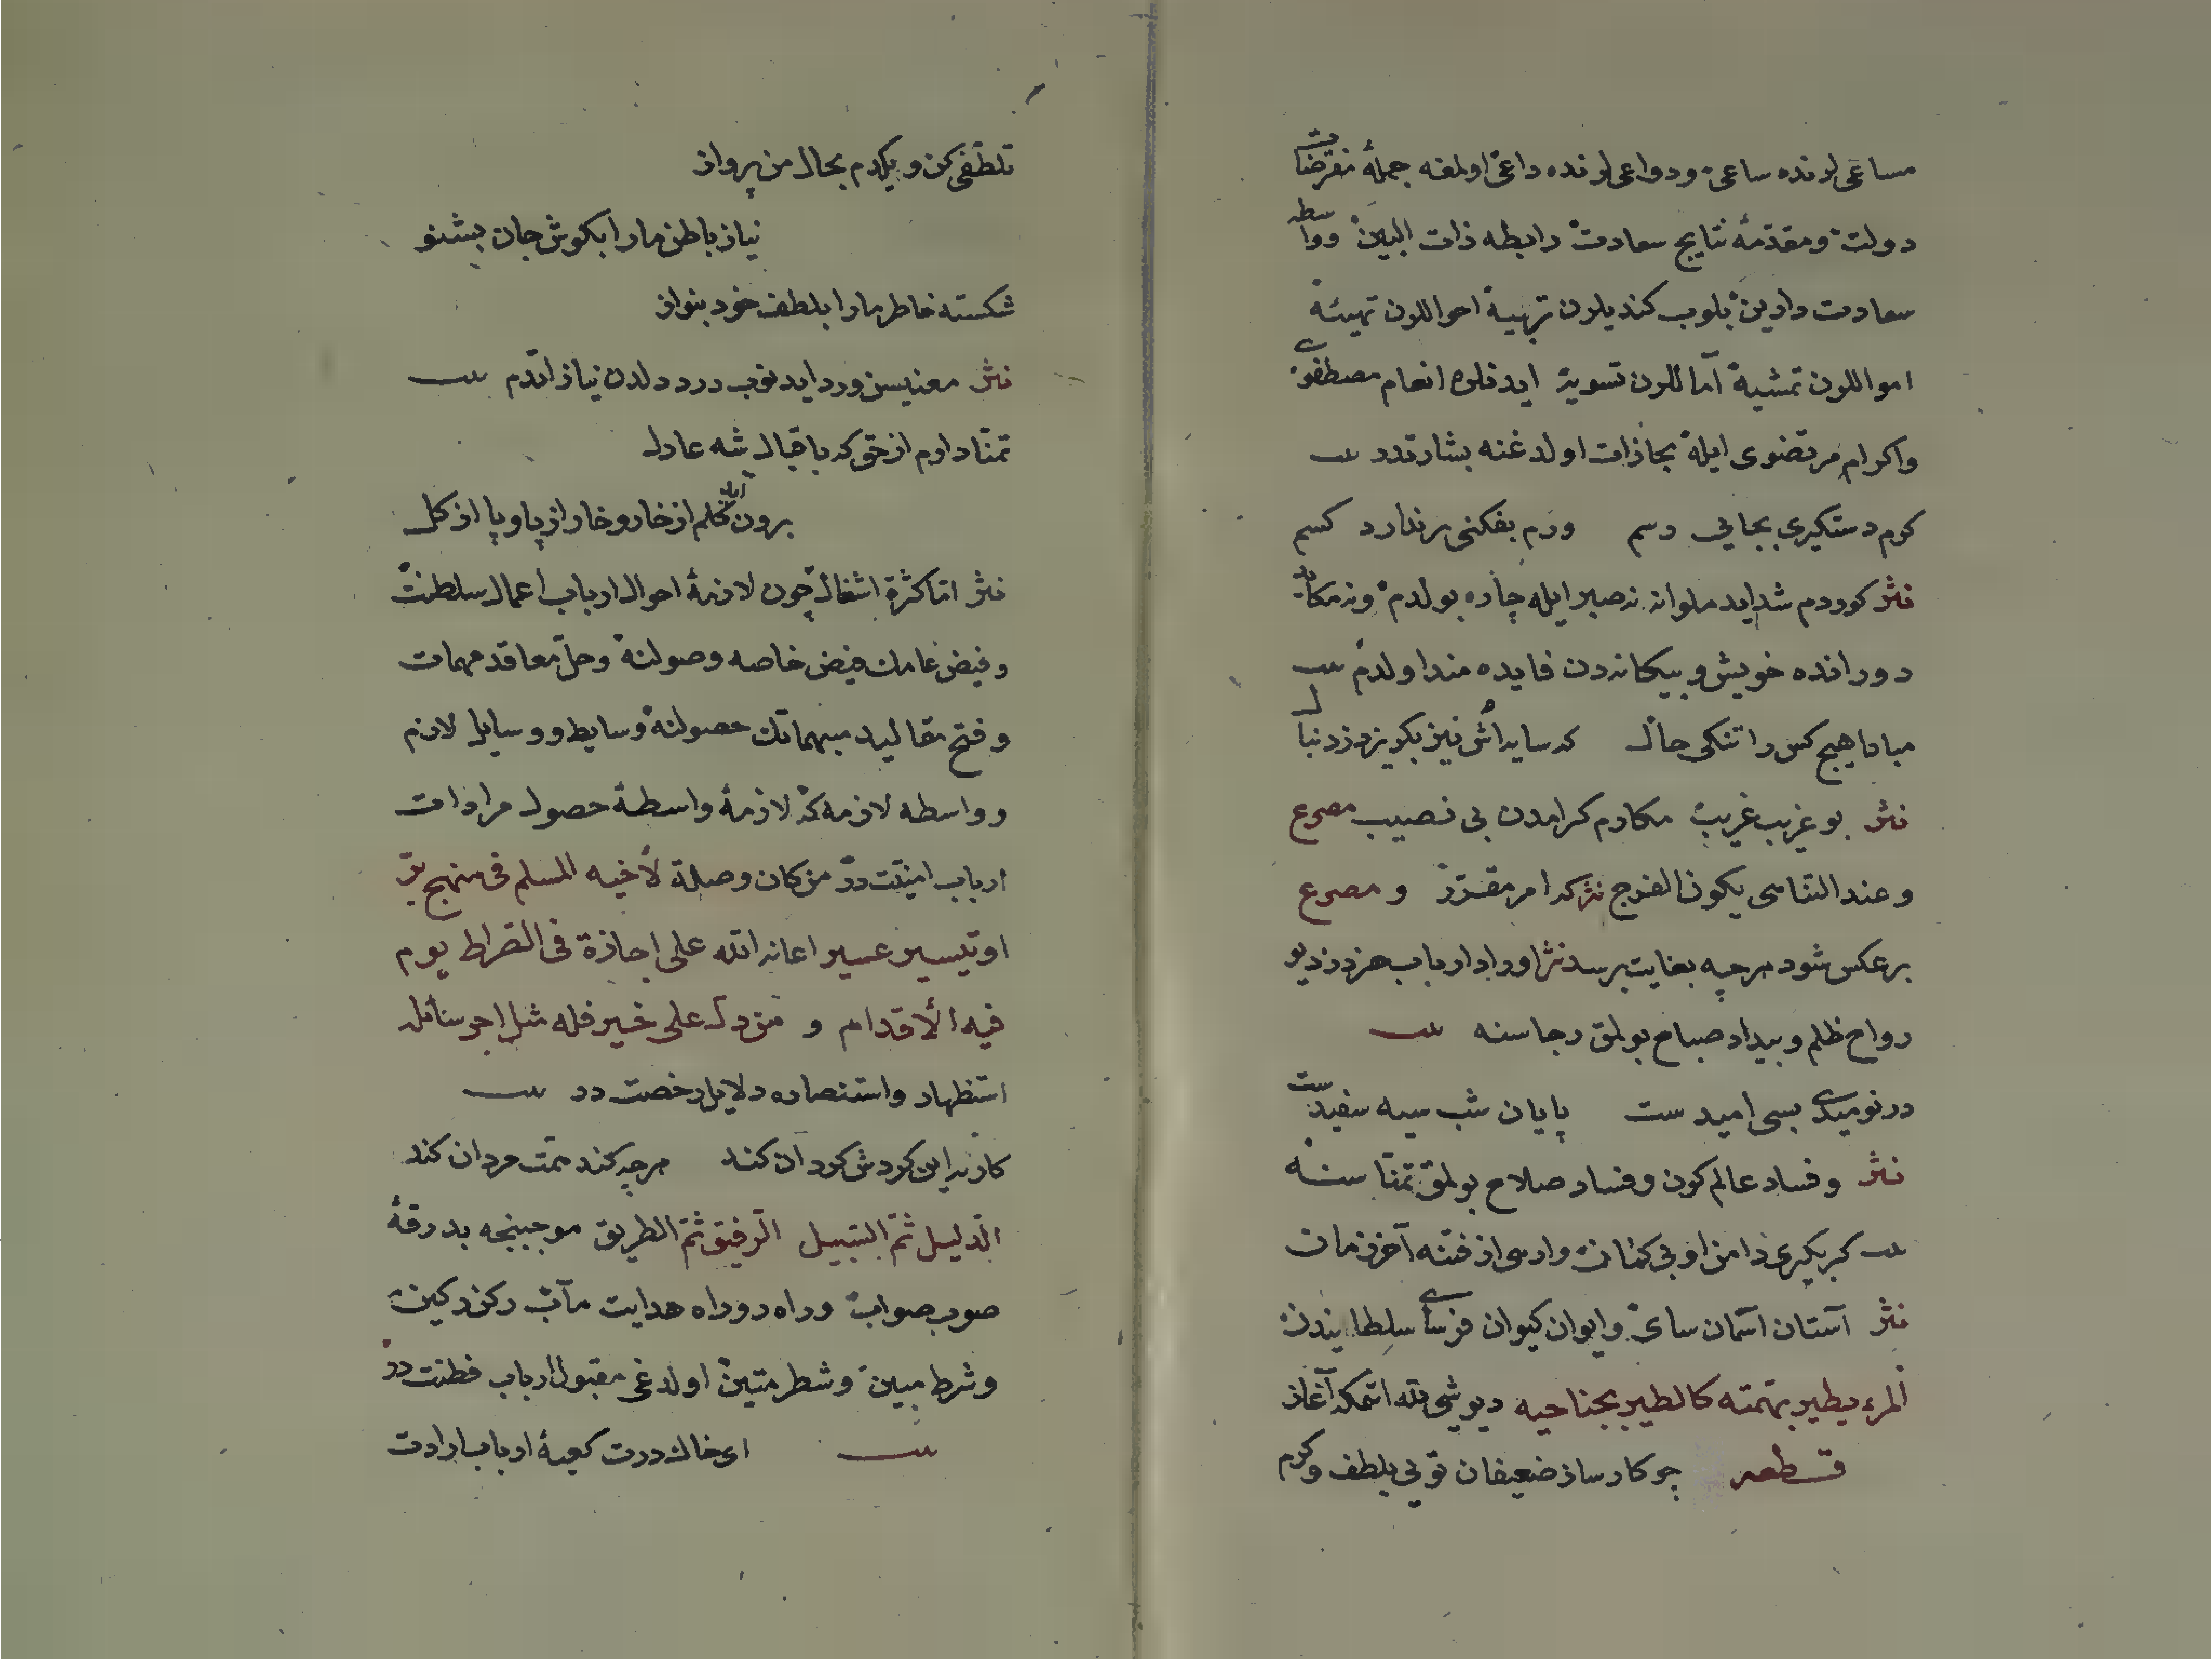 مساعی لرنده ساعی و دواعی لرنده داعی اولمغه جملهٔ مفترضات
دولت و مقدمهٔ نتایج سعادت رابطه ذات البین و واسطه
سعادت دارین بلوب کندیلرن تربیهٔ احواللرن تهیئهٔ
امواللرن تمشیهٔ آماللرن تسویهٔ ایدنلره انعام مصطفوی
واکرام مرتضوی ایله مجازات اولدغنه بشارتدر بیت
کرم دستکیری بجایی رسم ورم بفکنی برندارد کسم
نثر کوردم شداید ملوانه نه صبر ایله چاره بولدم ونه مکاید
دورانده خویش و بیکانه دن فایده مند اولدم بیت
مبادا هیچ کس را تنکی حال که سایه اش نیز بکریزد ز دنبال
نثر بو غریب غریب مکارم کرامدن بی نصیب مصرع
وعند التناهی یکون الفرج نثر که امر مقرر و مصرع
برعکس شود هرچه بغایت برسد نثر اوراد ارباب هنردر دیو
رواح ظلم و بیداد صباح بولمق رجاسنه بیت
در نومیدی بسی امید ست پایان شب سیه سفیدست
نثر وفساد عالم کون وفساد صلاح بولمق تمناسنه
بیت کر بکیری دامن او بی کمان وارهی از فتنه آخر زمان
نثر آستان آسمان سای وایوان کیوان فرسای سلطانیندن
المرء یطیر بهمته کالطیر بجناحیه دیو شی لله اتمکه آغاز
قطعه چو کار ساز ضعیفان تویی بلطف وکرم
تلطفی کن ویکدم بحال من پرداز
نیاز باطن مارا بکوش جان بشنو
شکسته خاطر مارا بلطف خود بنواز
نثر معنیسن ورد ایدنوب درد دلدن نیاز اتدم بیت
تمنا دارم از حق که باقبال شه عادل
برون آید کلم از خار وخار از پا وپا از کل
نثر اما کثرة اشغال چون لازمهٔ احوال ارباب اعمال سلطنت
وفیض عامك فیض خاصه وصولنه وحل معاقد مهمات
وفتح مقالید مبهماتك حصولنه وسایط ووسایل لازم
وواسطه لازمه که لازمهٔ واسطهٔ حصول مرادات
ارباب امنیت در من کان وصلة لأخیه المسلم فی منهج بر
او تیسیر عسیر اعانه الله علی اجازة فی الصراط یوم
فیه الأقدام و من دل علی خیر فله مثل اجر سائله
استظهار واستنصاره دلایل رخصت در بیت
کار نه این کردش کردان کند هرچه کند همت مردان کند
الدلیل ثم السبیل الرفیق ثم الطریق موجبنجه بدرقهٔ
صوب صواب وراه رو راه هدایت مآب رکن رکین
وشرط مبین وشطر متین اولدغی مقبول ارباب فطنت در
بیت ای خاك درت کعبهٔ ارباب ارادت